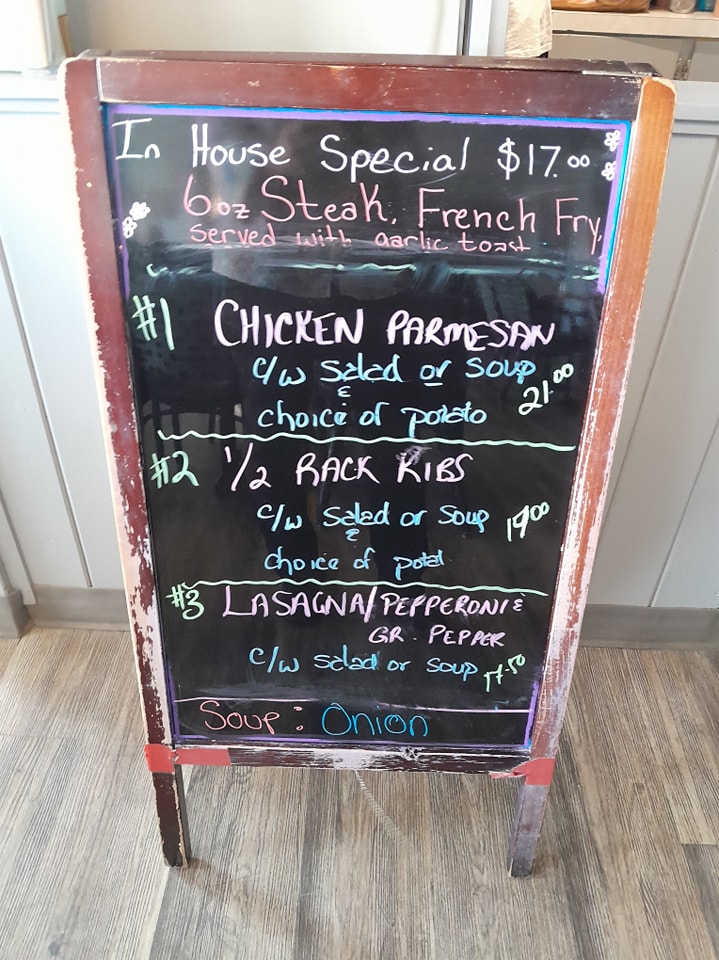 In House Special $17.00
6oz Steak, French Fry,
served with garlic toast
#1 CHICKEN PARMESAN
c/w salad or soup
&
choice of potato
21.00
#2 1/2 RACK RIBS
c/w salad or soup
&
19.00
choice of potat
#3 LASAGNA/PEPPERONI &
GR. PEPPER
c/w salad or soup 17.50
Soup: Onion